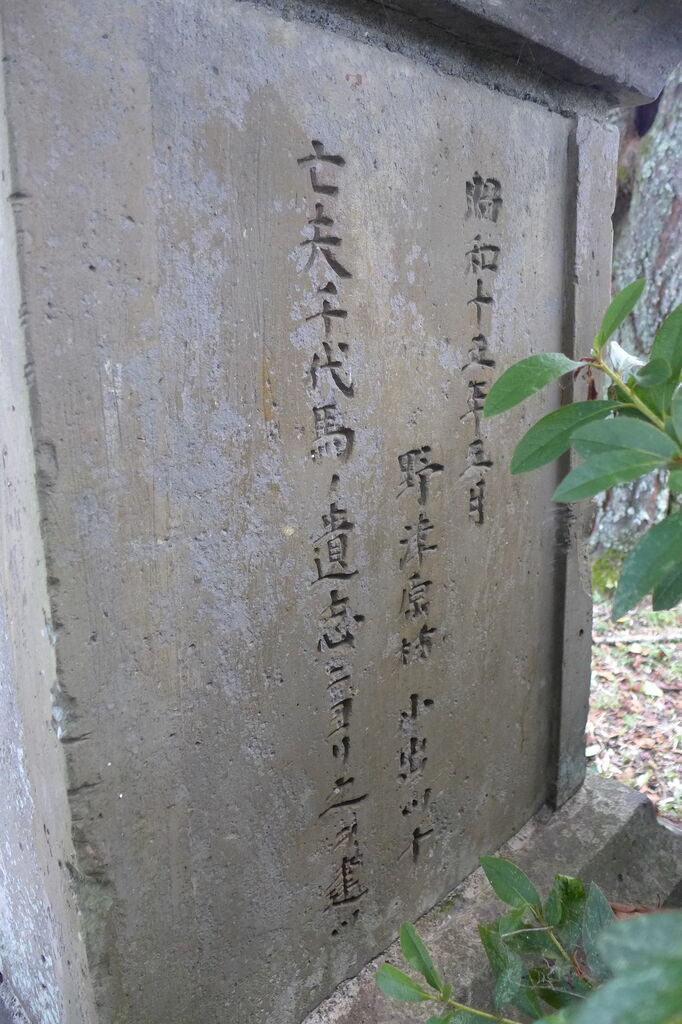 昭和十五年五月
野津原村 小出サト
亡夫千代馬ノ遺志ニヨリ之ヲ建ツ